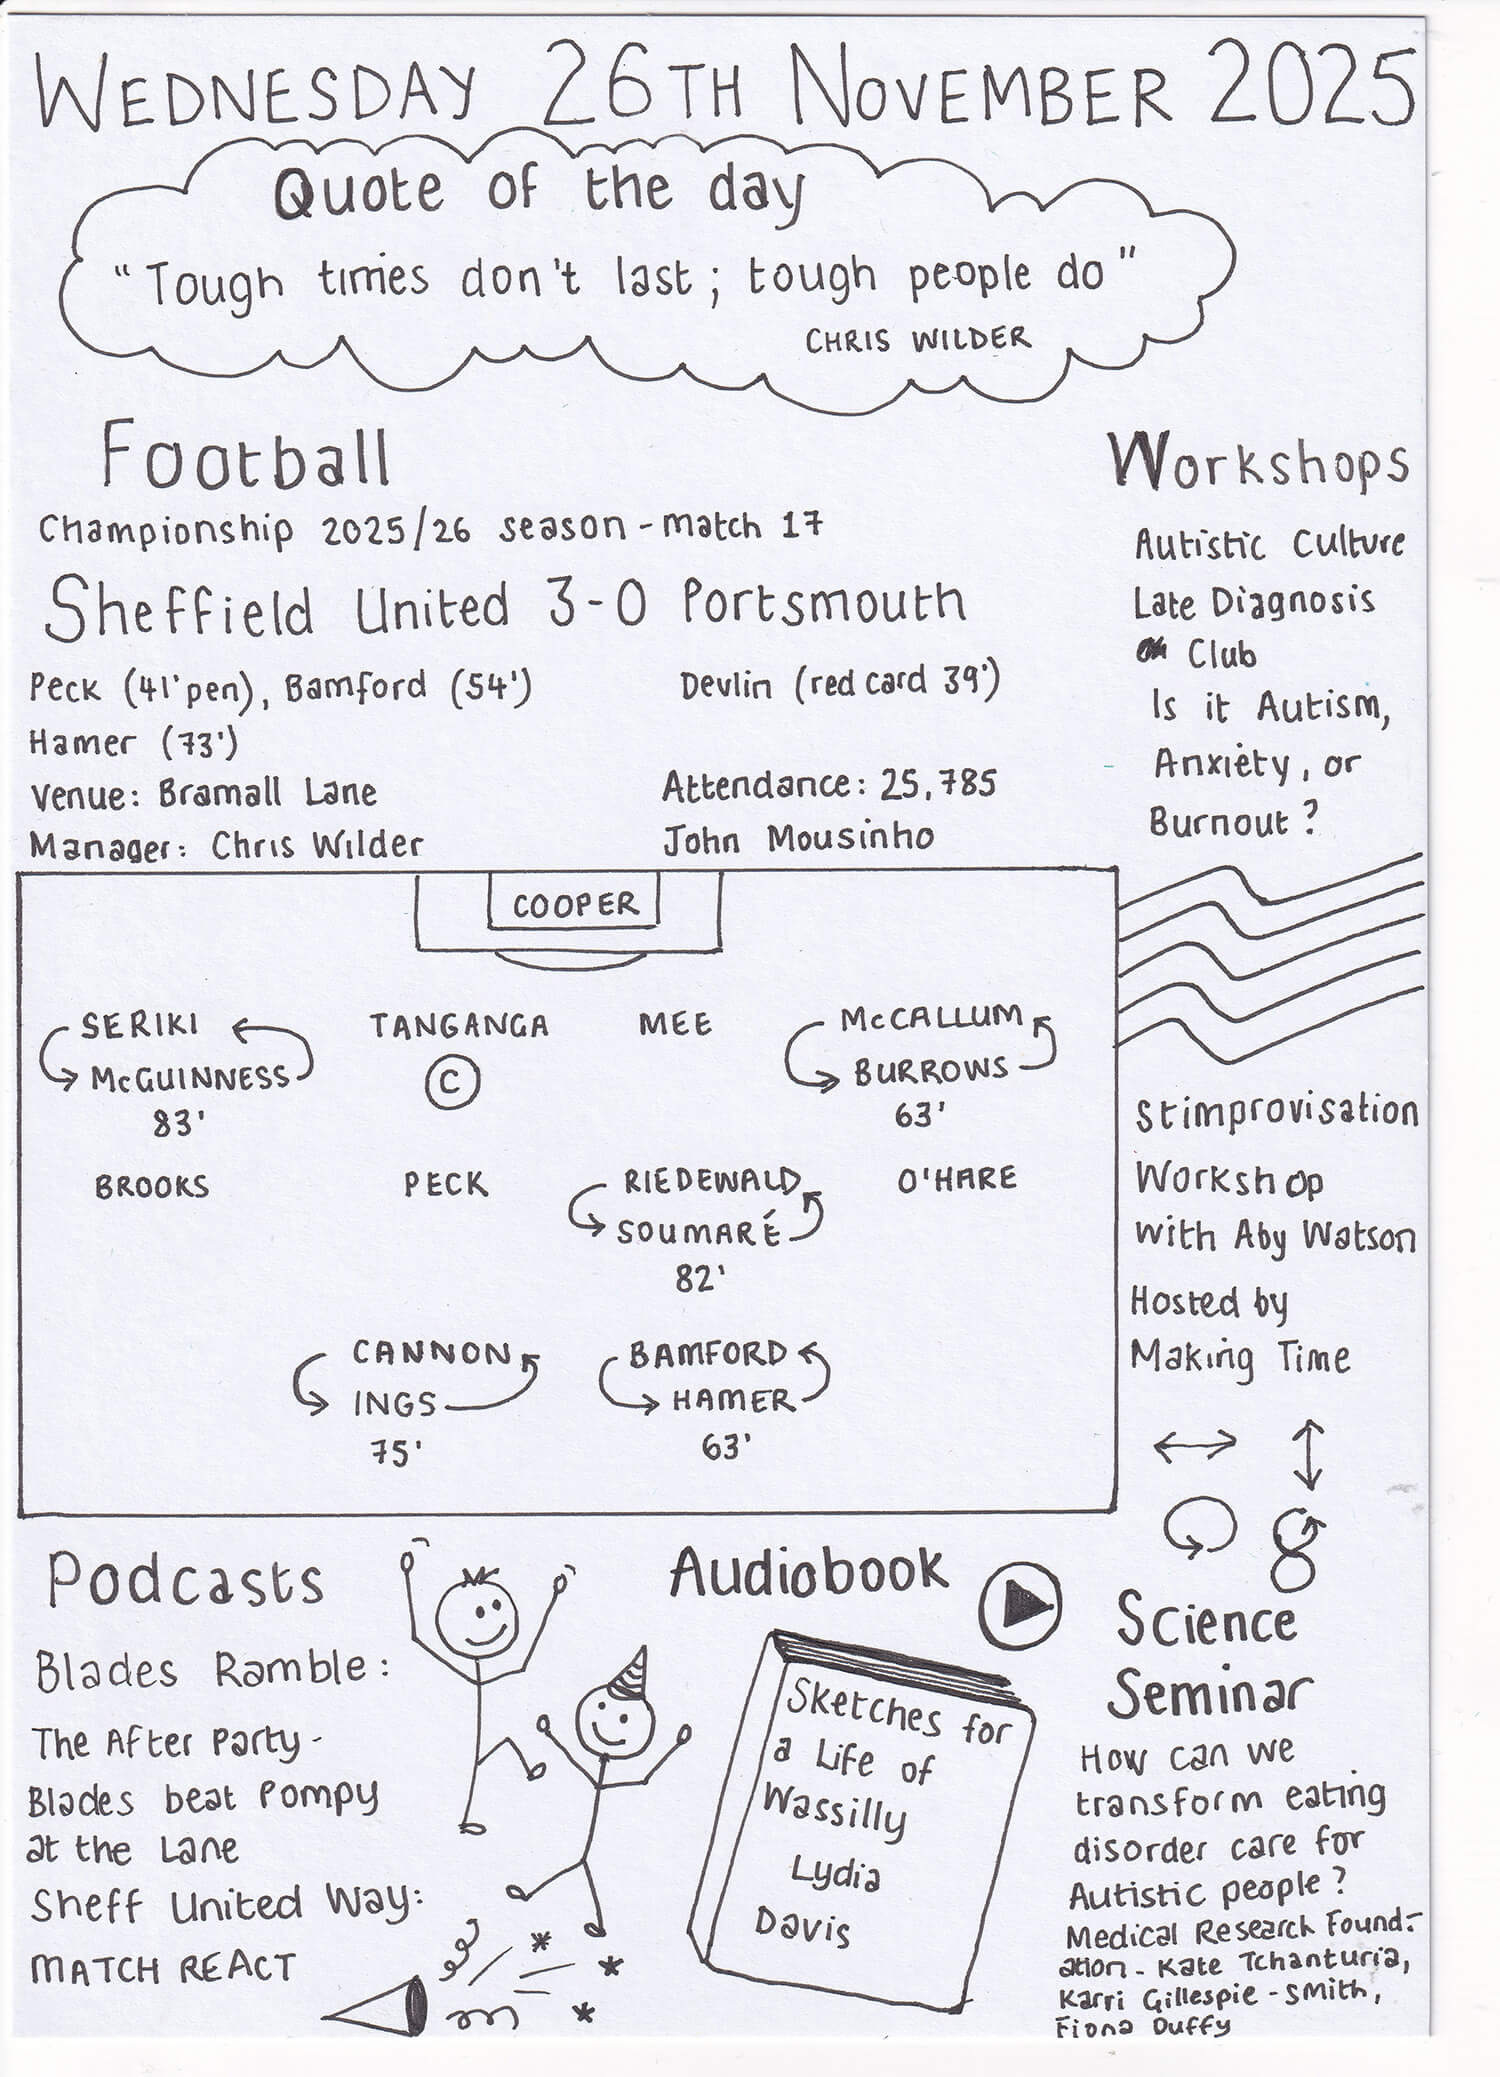 WEDNESDAY 26TH NOVEMBER 2025
Quote of the day
"Tough times don't last; tough people do"
CHRIS WILDER
Football
Championship 2025/26 season - match 17
Sheffield United 3-0 Portsmouth
Peck (41' pen), Bamford (54')
Devlin (red card 39')
Hamer (73')
Venue: Bramall Lane
Attendance: 25,785
Manager: Chris Wilder
John Mousinho
COOPER
SERIKI
TANGANGA
MEE
McCALLUM
McGUINNESS
C
BURROWS
83'
63'
BROOKS
PECK
RIEDEWALD
O'HARE
SOUMARÉ
82'
CANNON
BAMFORD
INGS
HAMER
75'
63'
Workshops
Autistic Culture
Late Diagnosis
Club
Is it Autism,
Anxiety, or
Burnout?
Stimprovisation
Workshop
with Aby Watson
Hosted by
Making Time
Podcasts
Blades Ramble:
The After Party -
Blades beat Pompy
at the Lane
Sheff United Way:
MATCH REACT
Audiobook
Sketches for
a Life of
Wassilly
Lydia
Davis
Science
Seminar
How can we
transform eating
disorder care for
Autistic people?
Medical Research Found-
ation - Kate Tchanturia,
Karri Gillespie-Smith,
Fiona Duffy